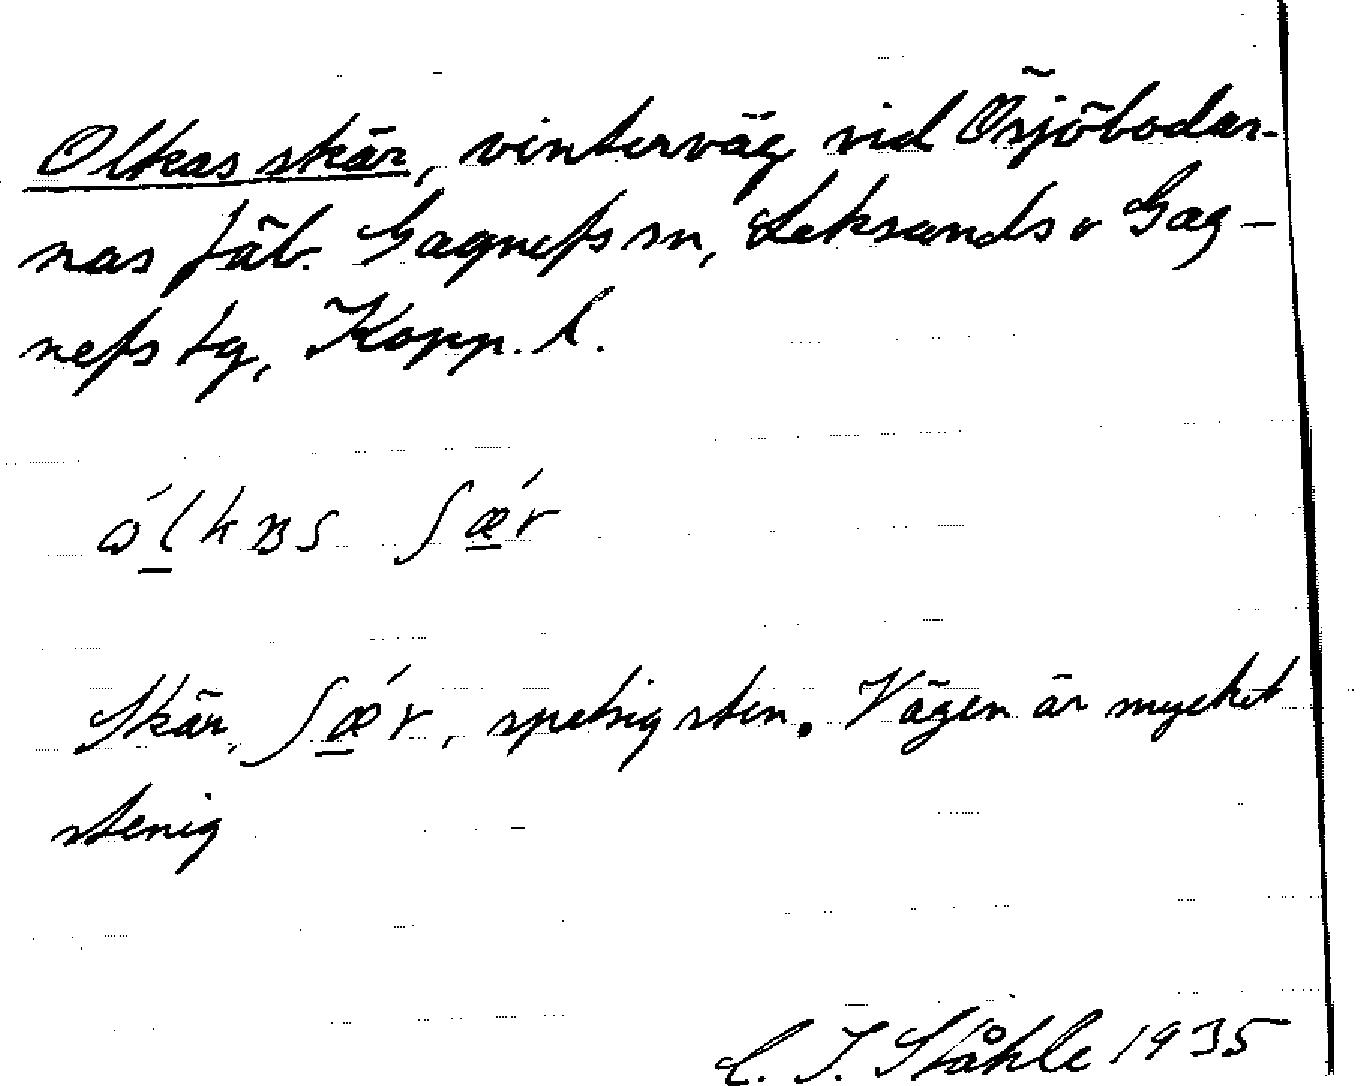 Olkas skär, vinterväg vid Örsjöbodar-
nas fäb. Gagnefs sn, Leksands o Gag-
nefs tg, Kopp. l.
Skär, ʃǽr, spetsig sten. Vägen är mycket
stenig
C. I. Ståhle 1935